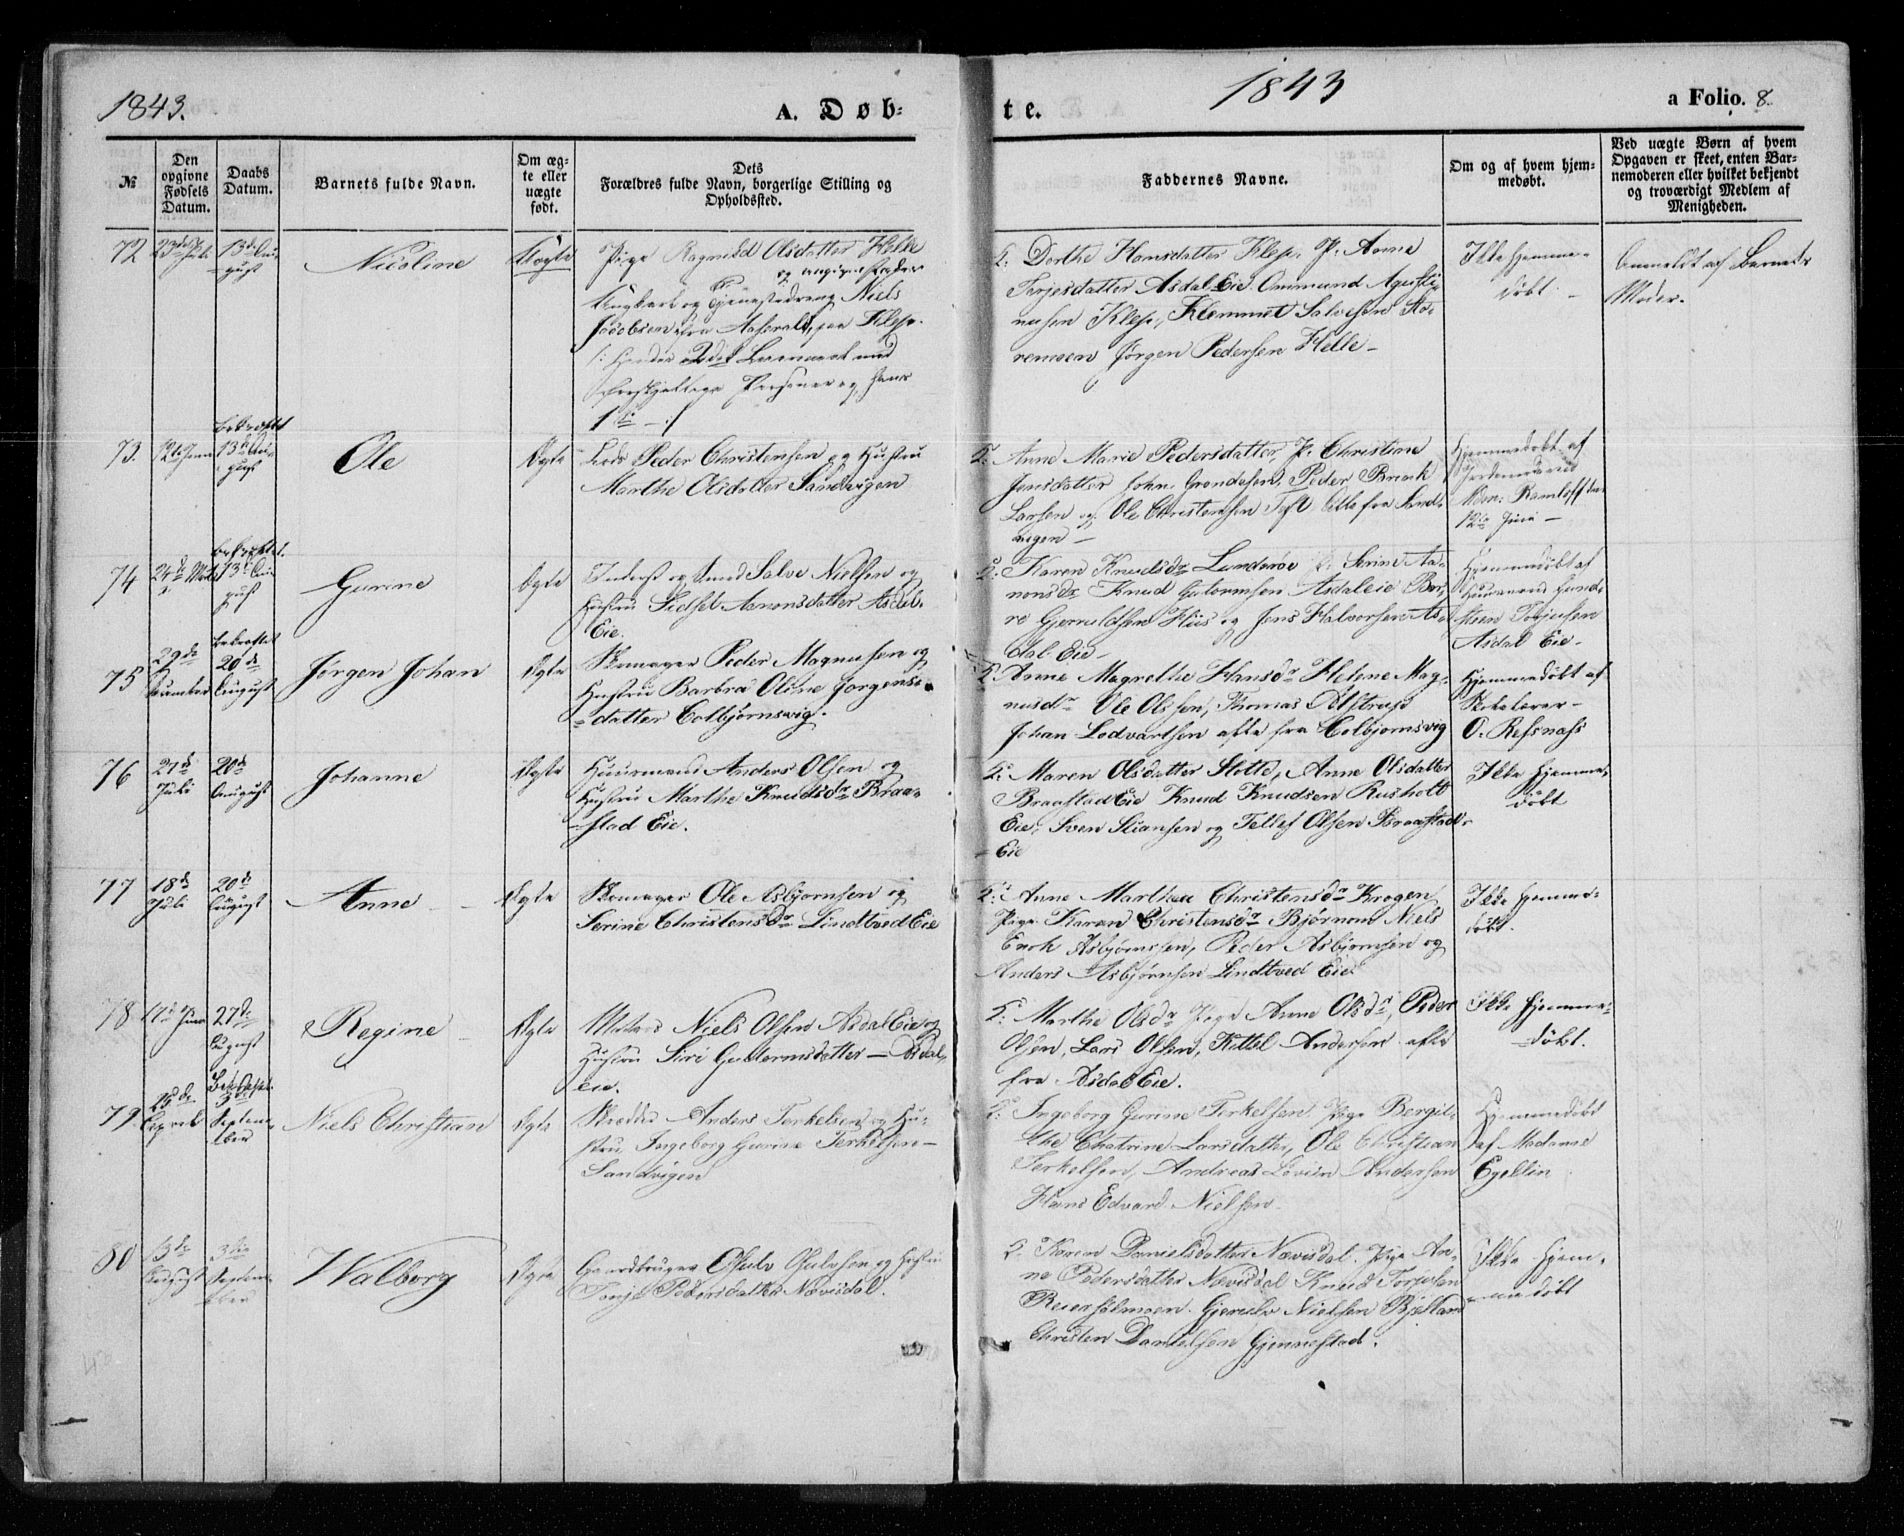 1843.
A. Døb-
te.
1843
a Folio. 8.
№
Den opgivne Fødsels Datum.
Daabs Datum.
Barnets fulde Navn.
Om ægte eller uægte født.
Dets Forældres fulde Navn, borgerlige Stilling og Opholdssted.
Faddernes Navne.
Om og af hvem hjemmedøbt.
Ved uægte Børn af hvem Opgaven er skeet, enten Barnemoderen eller hvilket bekjendt og troværdigt Medlem af Menigheden.
72
23de Juli
13de August
Nicoline
Uægte
Pige Ragnild Olsdatter Helle
og angiven Fader
Ungkarl og Tjenestedreng Niels
Jacobsen fra Aaseral, paa Klep.
Dorthe Hansdatter Klep, P. Anne
Terjesdatter Asdal Eie, Ommund Agusti-
nusen Klep, Klemmet Salvesen
Jørgen Pedersen Helle
Ikke hjemme-
døbt
Anmeldt af Barnets
Moder.
73.
12te Juni
bekræftet
13de August
Ole
Ægte
Lods Peder Christensen og Hustru
Marthe Olsdatter Sandvigen
Anne Marie Pedersdatter, P. Christine
Jensdatter, John Gundesen, Peder Brink
Larsen og Ole Christensen Toft alle fra Sand-
vigen
Hjemmedøbt af
Jordemoder
Mdm. Ramløff den
12te Juni
74
24de
bekræftet
13de August
Gurine
Ægte
Inderst og Smed Salve Nielsen og
Hustru Sidsel Aanonsdatter Asdal-
Eie.
Karen Knudsdr Lunderøe P. Serine Aa-
nonsdr Knud Gutormsen Asdaleie Bør-
re Gjeruldsen Hiis og Jens Halvorsen As-
dal Eie
Hjemmedøbt af
Huusmand
Torjusen
Asdal Eie
75
29de
bekræftet
20de August
Jørgen Johan
Ægte
Skomager Peder Magnusen og
Hustru Barbra Oline Jørgens-
datter Colbjørnsvig.
Anne Magrethe Hansdr Helene Mag-
nusdr Ole Olsen, Thomas Alstrup
Johan Lodvartsen alle fra Colbjørnsvig
Hjemmedøbt af
Skolelærer
O. Refsnæss
76
27de Juli
20de August
Johanne
Ægte
Huusmand Anders Olsen og
Hustru Marthe Knudsdr Braa-
stad Eie.
Maren Olsdatter Slotte, Anne Olsdatter
Braastad Eie Knud Knudsen Rusholt
Eie, Sven Stiansen og Tellef Olsen Braastad-
Eie
Ikke hjemme-
døbt
77
18de Juli
20de August
Anne
Ægte
Skomager Ole Asbjørnsen og
Serine Christensdr Lindtved Eie
Anne Marthea Christensdr Krogen
Pige Karen Christensdr Bjørnom Niels
Enok Asbjørnsen, Peder Asbjørnsen og
Anders Asbjørnsen Lindtved Eie
Ikke hjemme-
døbt.
78
17de Juni
27de August
Regine
Ægte
Matros Niels Olsen Asdal Eie og
Hustru Siri Guttormsdatter Asdal
eie.
Marthe Olsdr Pige Anne Olsdr, Peder
Olsen, Lars Olsen, Kittel Andersen alle
fra Asdal Eie.
Ikke hjemme-
døbt.
79
25de April
3de September
Niels Christian
Ægte
Skredder Anders Terkelsen og Hu-
stru Ingeborg Gurine Terkelsen
Sandvigen
Ingeborg Gurine Terkelsen Pige Bergit-
the Chatrine Larsdatter, Ole Christian
Terkelsen, Andreas Lovin Andersen
Hans Edvard Nielsen
Hjemmedøbt
af Madame
Egeltin
80
13de August
3die September
Walborg
Ægte
Gaardbruger Osuld Osuldsen og Hustru
Tonje Pedersdatter Nævisdal.
Karen Danielsdatter Nævisdal, Pige An-
ne Pedersdatter Nævisdal Knud Torjesen
Reiersølmoen. Gjeruld Nielsen Bjelland
Christen Danielsen Gjennestad.
Ikke hjem-
me døbt